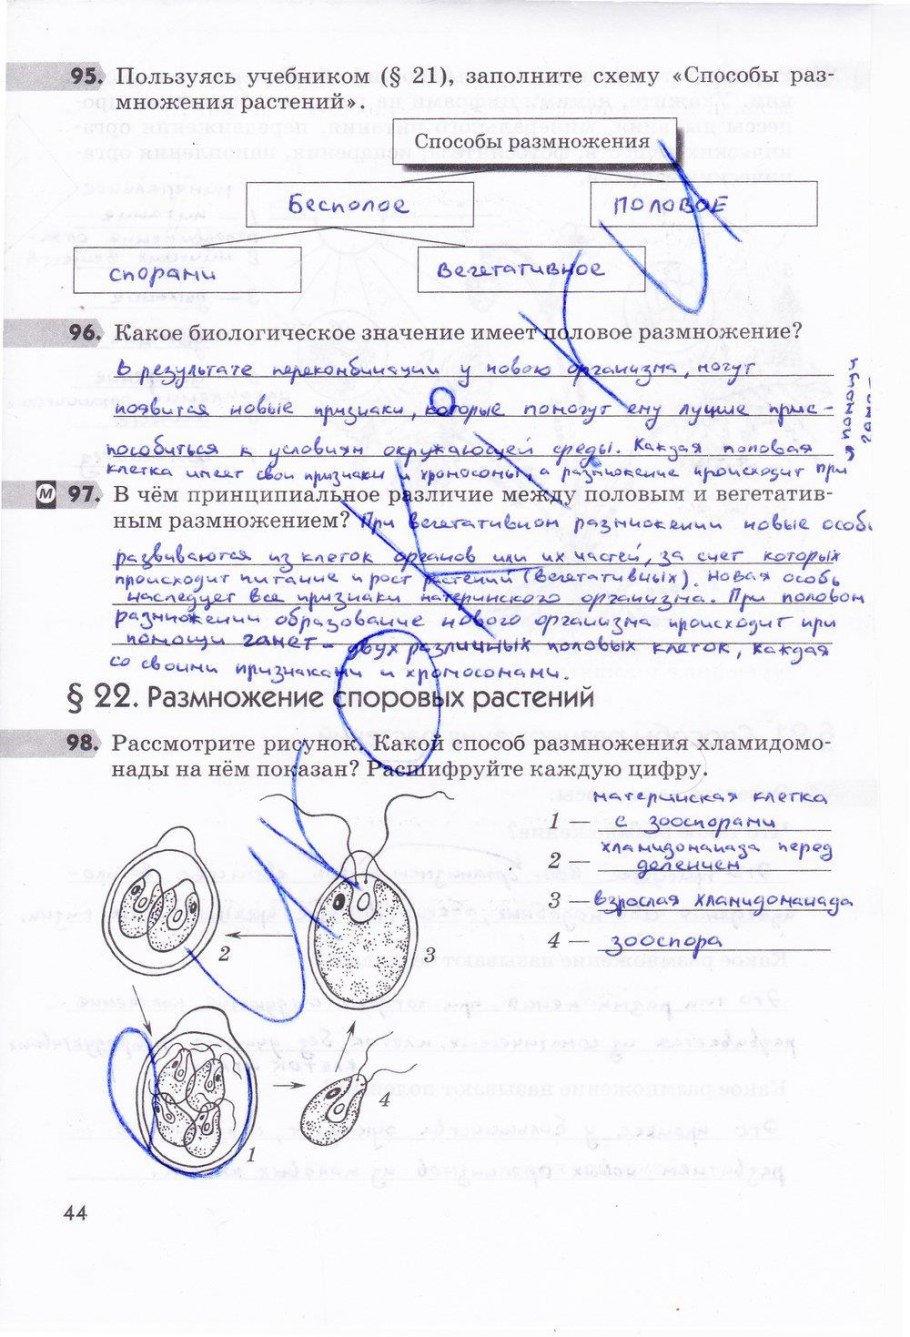 95. Пользуясь учебником (§ 21), заполните схему «Способы раз-
множения растений».
Способы размножения
Бесполое
ПОЛОВОЕ
спорами
Вегетативное
96. Какое биологическое значение имеет половое размножение?
В результате перекомбинации у нового организма, могут
появится новые признаки, которые помогут ему лучше прис-
пособиться к условиям окружающей среды. Каждая половая
клетка имеет свои признаки и хромосомы, а размножение происходит при
М 97. В чём принципиальное различие между половым и вегетатив-
ным размножением? При вегетативном размножении новые особи
развиваются из клеток органов или их частей, за счет которых
происходит питание и рост растений (вегетативных). Новая особь
наследует все признаки материнского организма. При половом
размножении образование нового организма происходит при
помощи гамет – двух различных половых клеток, каждая
со своими признаками и хромосомами.
§ 22. Размножение споровых растений
98. Рассмотрите рисунок. Какой способ размножения хламидомо-
нады на нём показан? Расшифруйте каждую цифру.
материнская клетка
1 — с зооспорами
хламидомонада перед
2 — делением
3 — взрослая хламидомонада
4 — зооспора
2
3
4
1
44